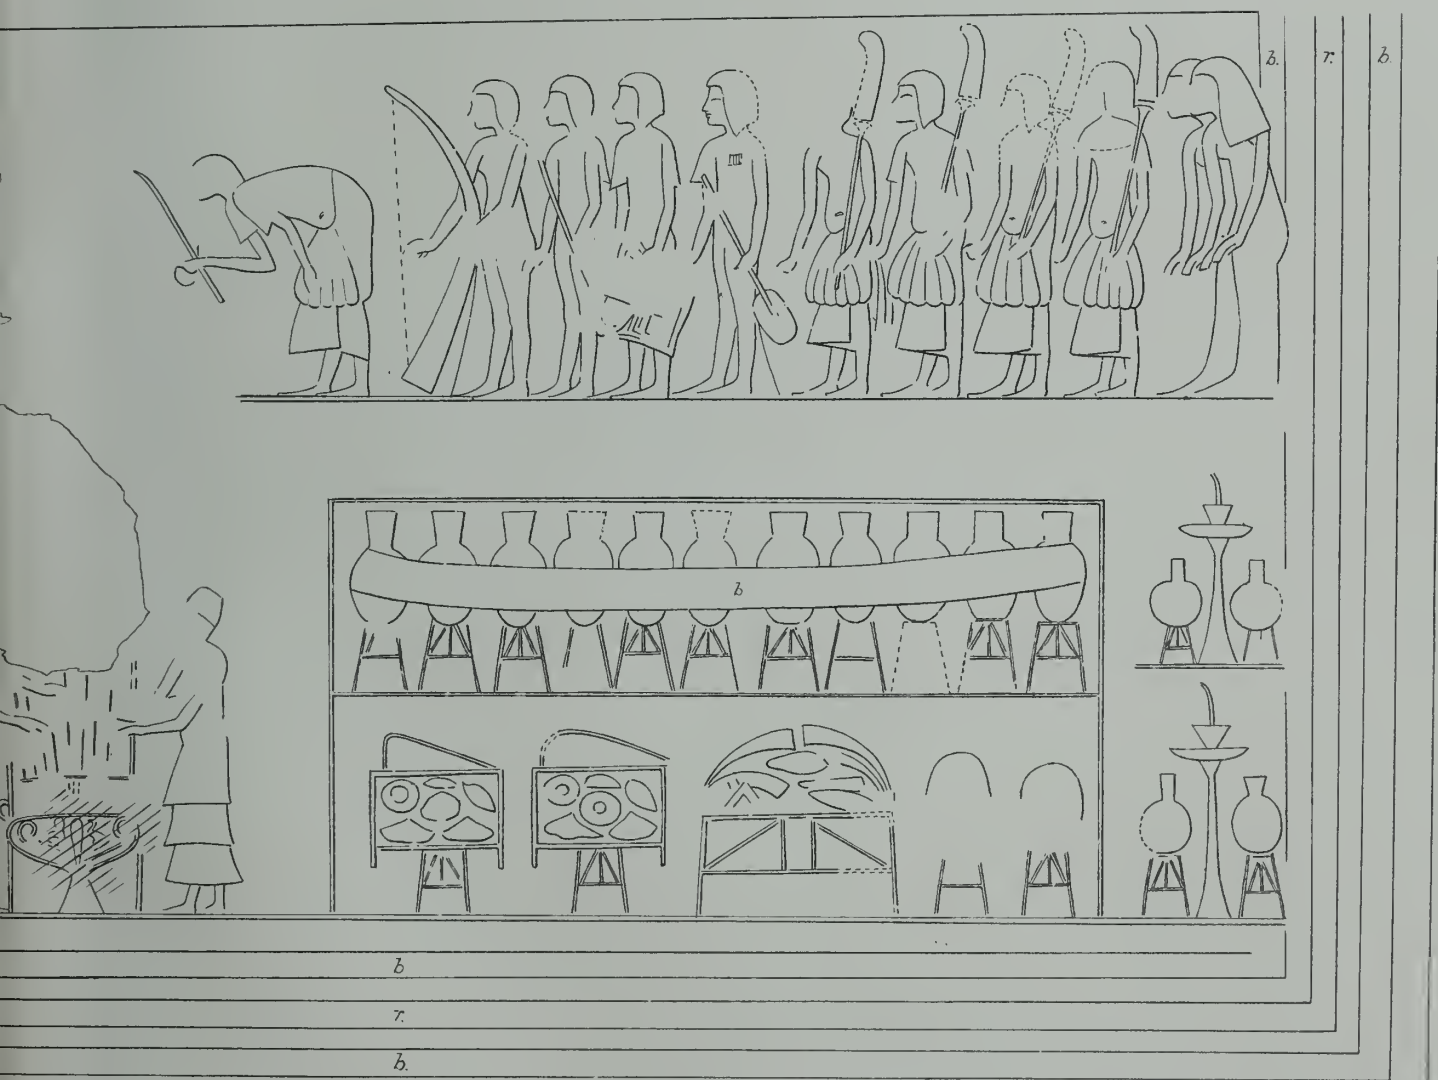 b. r. b.
b
b
r.
b.